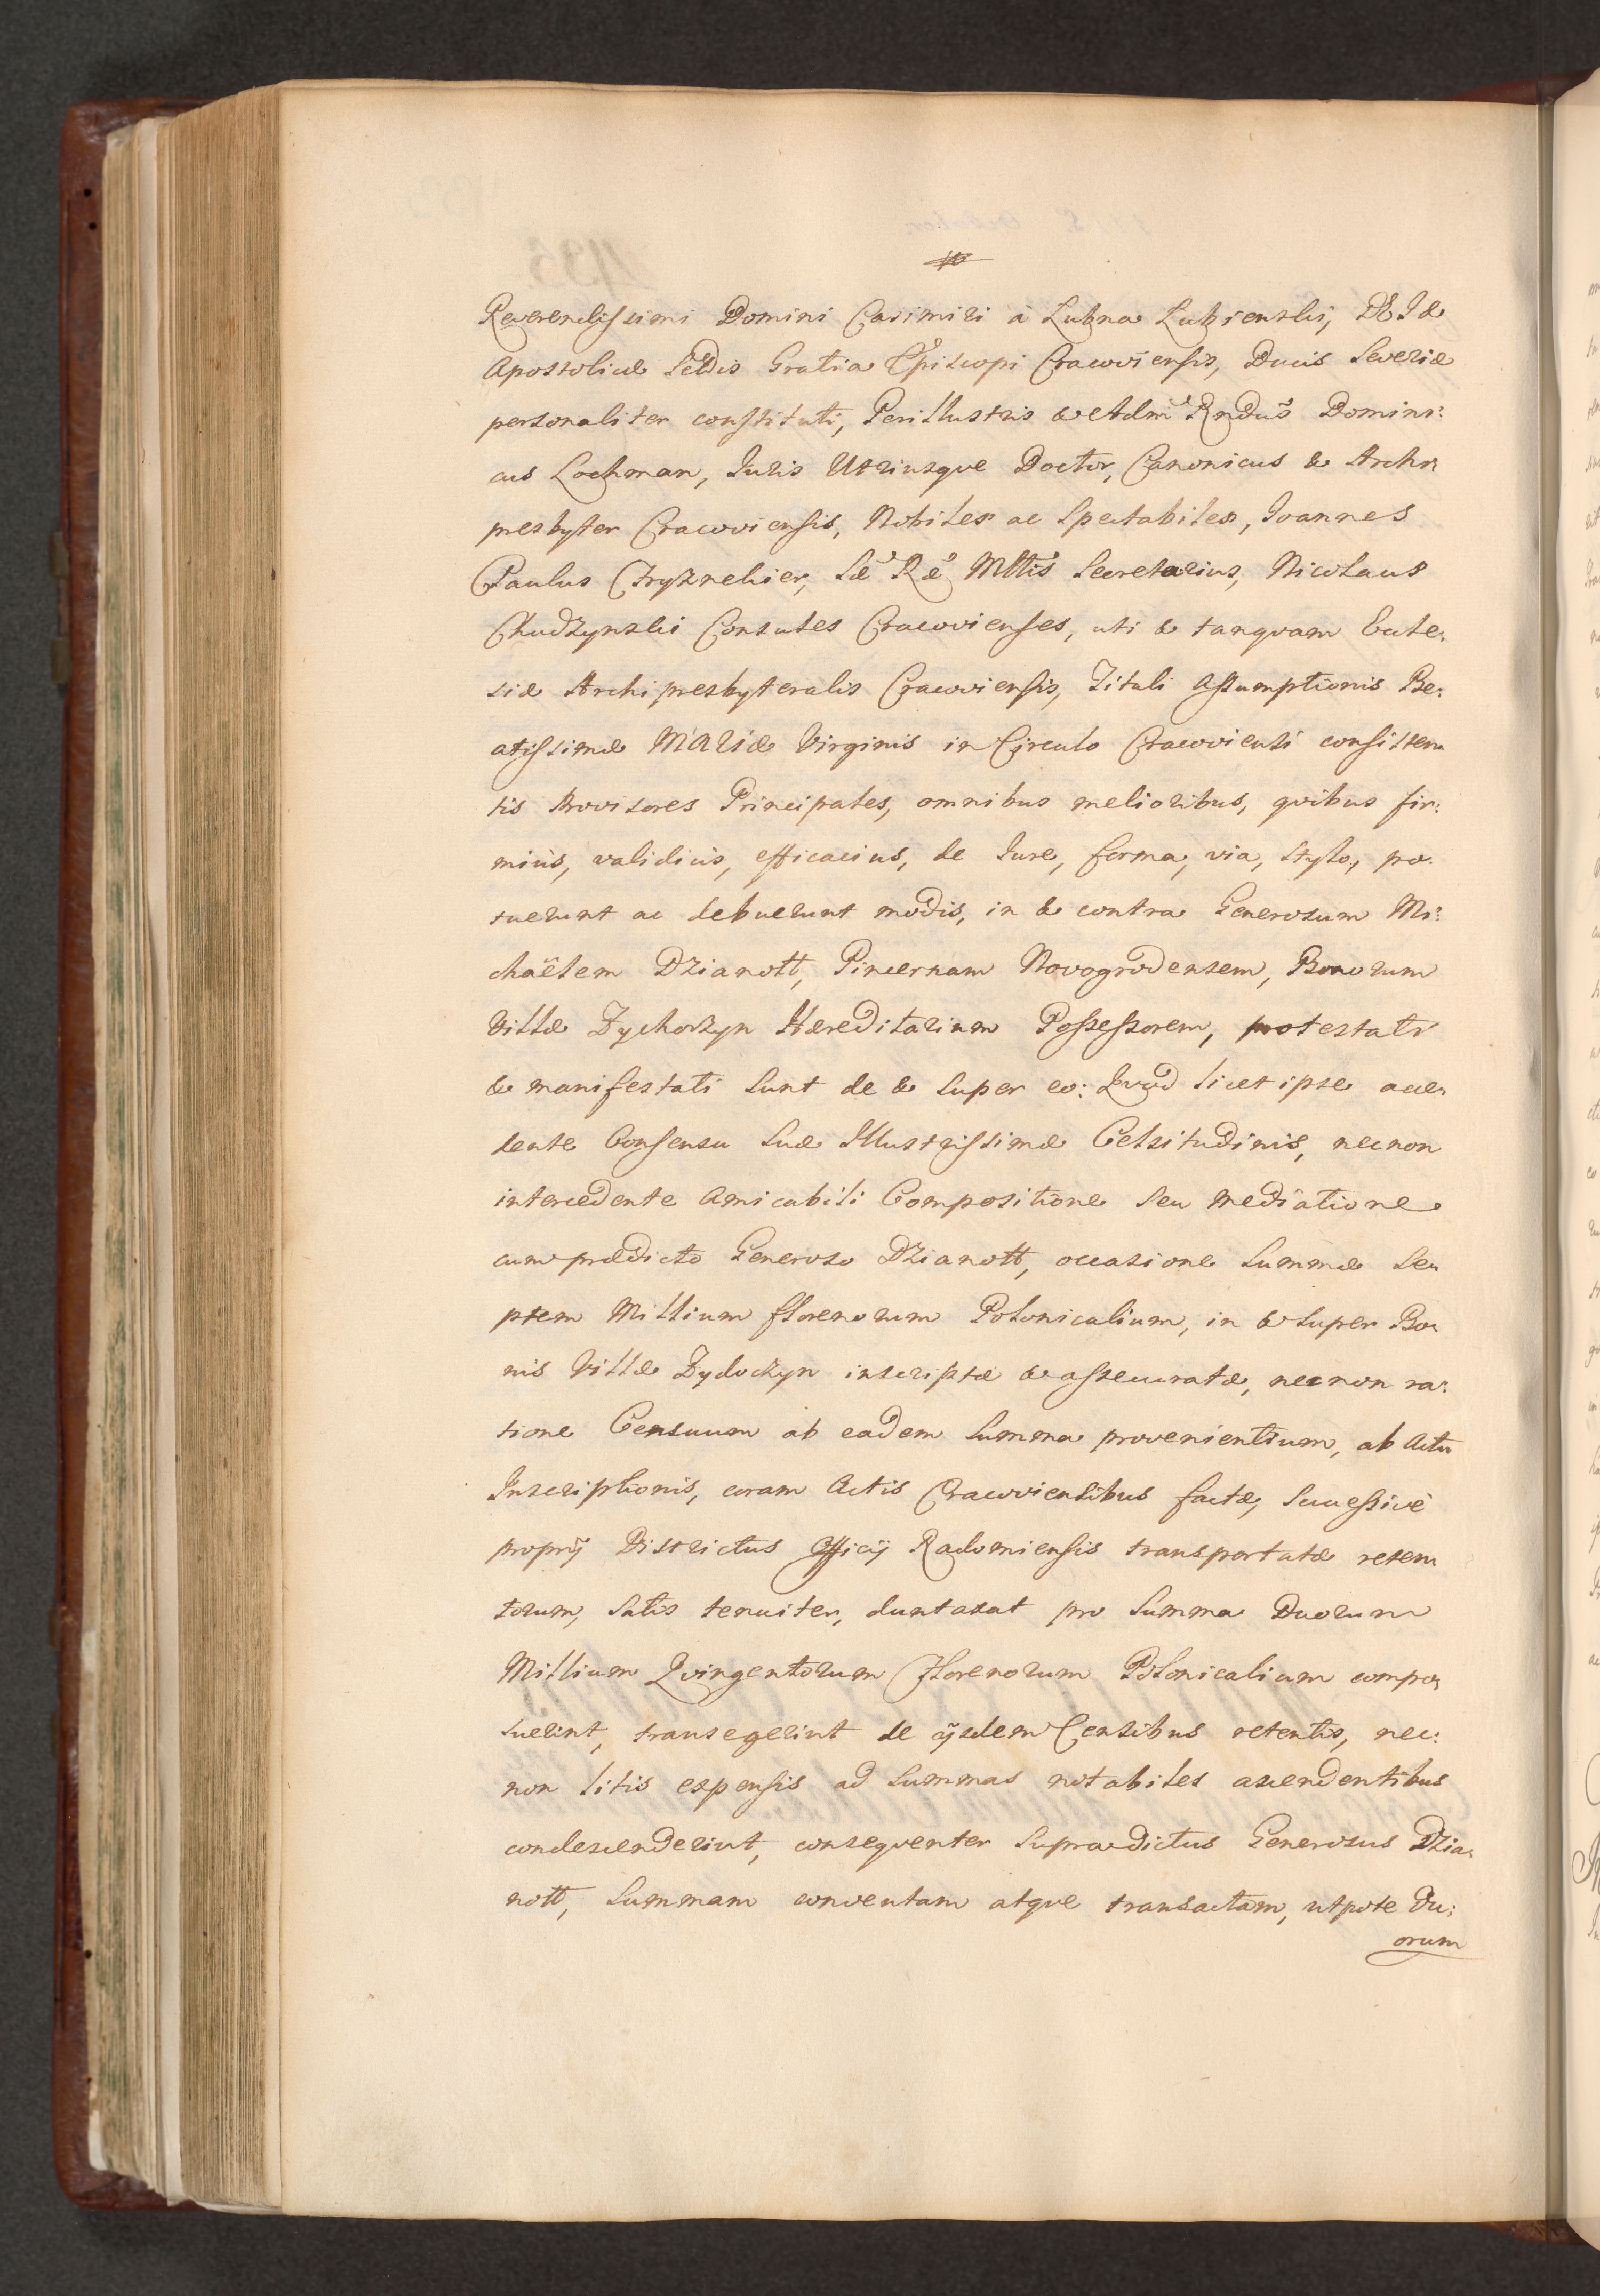 Reverendissimi Domini Casimiri à Lubna Lubienski, DEI &
Apostolicæ Sedis Gratia Episcopi Cracoviensis, Ducis Severiæ
personaliter constituti, Perillustris & Adm Rndus Domini:
cus Lochman, Iuris Utriusque Doctor, Canonicus & Archi
presbyter Cracoviensis, Nobiles ac Spectabiles, Ioannes
Paulus Fryznekier, Sæ Ræ Mttis Secretarius, Nicolaus
Chudzynski Consules Cracovienses, uti & tanquam Eccle,
siæ Archipresbyteralis Cracoviensis, Tituli Assumptionis Be:
atissimæ MARIÆ Virginis in Circulo Cracoviensi consisten
tis Provisores Principales, omnibus melioribus, quibus fir:
miùs, validiùs, efficacius, de Iure, forma, via, stylo, po:
tuerunt ac debuerunt modis, in & contra Generosum Mi:
chaëlem Dzianott, Pincernam Novogrodensem, Bonorum
Villæ Zychorzyn Hæreditarium Possessorem, protestati
& manifestati sunt de & super eo: Quod licet ipse acce,
dente Consensu Suæ Illustrissimæ Celsitudinis, necnon
intercedente amicabili Compositione seu mediatione
cum prædicto Generoso Dzianott, occasione Summæ Se,
ptem Millium florenorum Polonicalium, in & super Bo,
nis Villæ Zydoczyn inscriptæ & assecuratæ, necnon ra:
tione Censuum ab eadem Summa provenientium, ab Actu
Inscriptionis, coram Actis Cracoviensibus factæ, successivè
proprÿ Districtus Officÿ Radomiensis transportatæ reten
torum, satis tenuiter, duntaxat pro Summa Duorum
Millium Quingentorum Florenorum Polonicalium compo,
suerint, transegerint de ÿsdem Censibus retentis, nec:
non litis expensis ad summas notabiles ascendentibus
condescenderint, consequenter supradictus Generosus Dzia,
nott, Summam conventam atque transactam, utpote Du:
orum